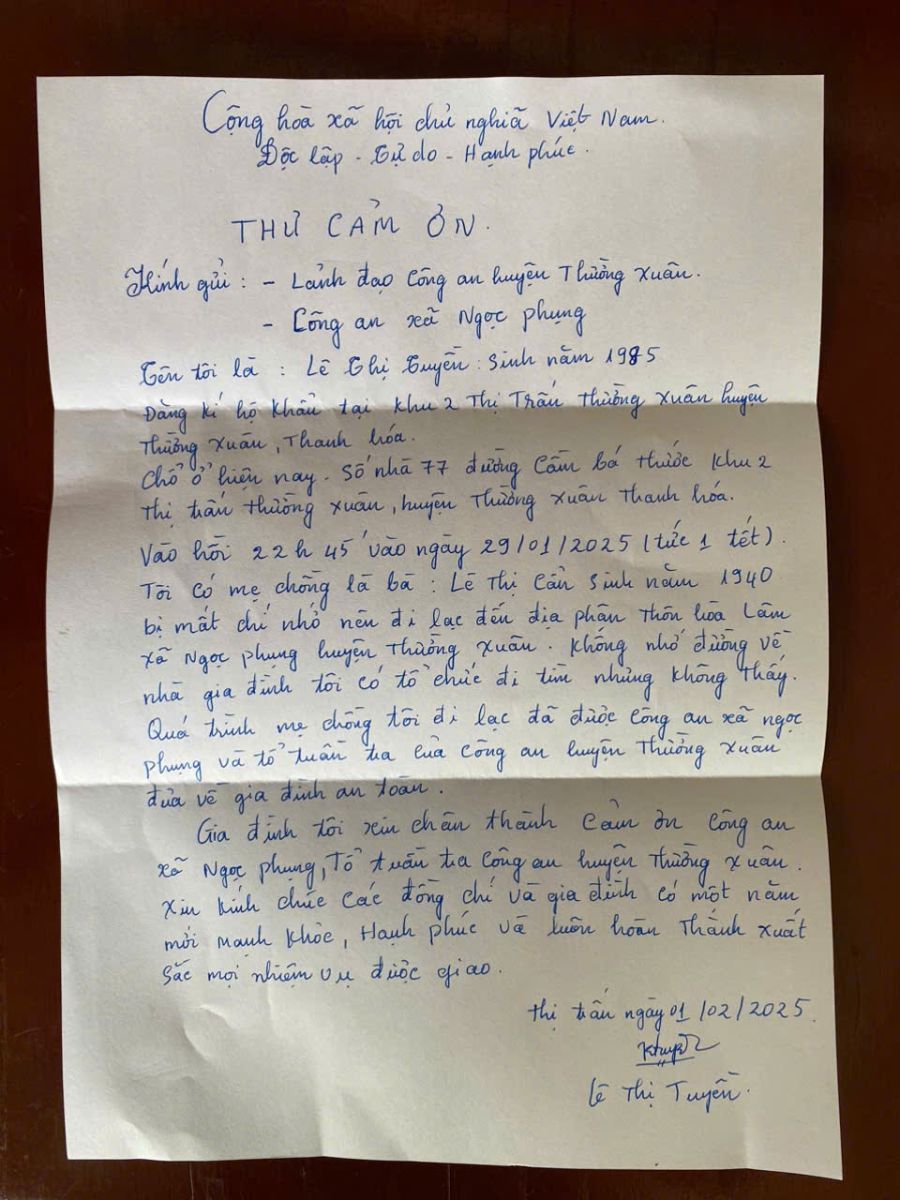 Cộng hoà xã hội chủ nghĩa Việt Nam.
Độc lập - Tự do - Hạnh phúc.
THƯ CẢM ƠN.
Kính gửi : - Lảnh đạo Công an huyện Thường Xuân.
- Công an xã Ngọc phụng
Tên tôi là : Lê Thị Tuyền : Sinh năm 1985
Đăng kí hộ khẩu tại khu 2 Thị Trấn Thường Xuân huyện
Thường Xuân, Thanh hóa.
Chổ ở hiện nay. Số nhà 77 đường Cầm bá thước khu 2
thị trấn thường xuân, huyện thường xuân thanh hóa.
Vào hồi 22h 45' vào ngày 29/01/2025 (tức 1 tết).
Tôi có mẹ chồng là bà : Lê Thị Cần Sinh năm 1940
bị mất chí nhớ nên đi lạc đến địa phận thôn hòa Lâm
xã Ngọc phụng huyện Thường Xuân. không nhớ đường về
nhà gia đình tôi có tổ chức đi tìm nhưng không thấy.
Quá trình mẹ chồng tôi đi lạc đã được công an xã ngọc
phụng và tổ tuần tra của công an huyện Thường Xuân
đưa về gia đình an toàn.
Gia đình tôi xin chân thành cảm ơn công an
xã Ngọc phụng, Tổ tuần tra công an huyện thường xuân.
Xin kính chúc các đồng chí và gia đình có một năm
mới mạnh khỏe, Hạnh phúc và luôn hoàn thành xuất
Sắc mọi nhiệm vụ được giao.
thị trấn ngày 01/02/2025.
Lê Thị Tuyền.